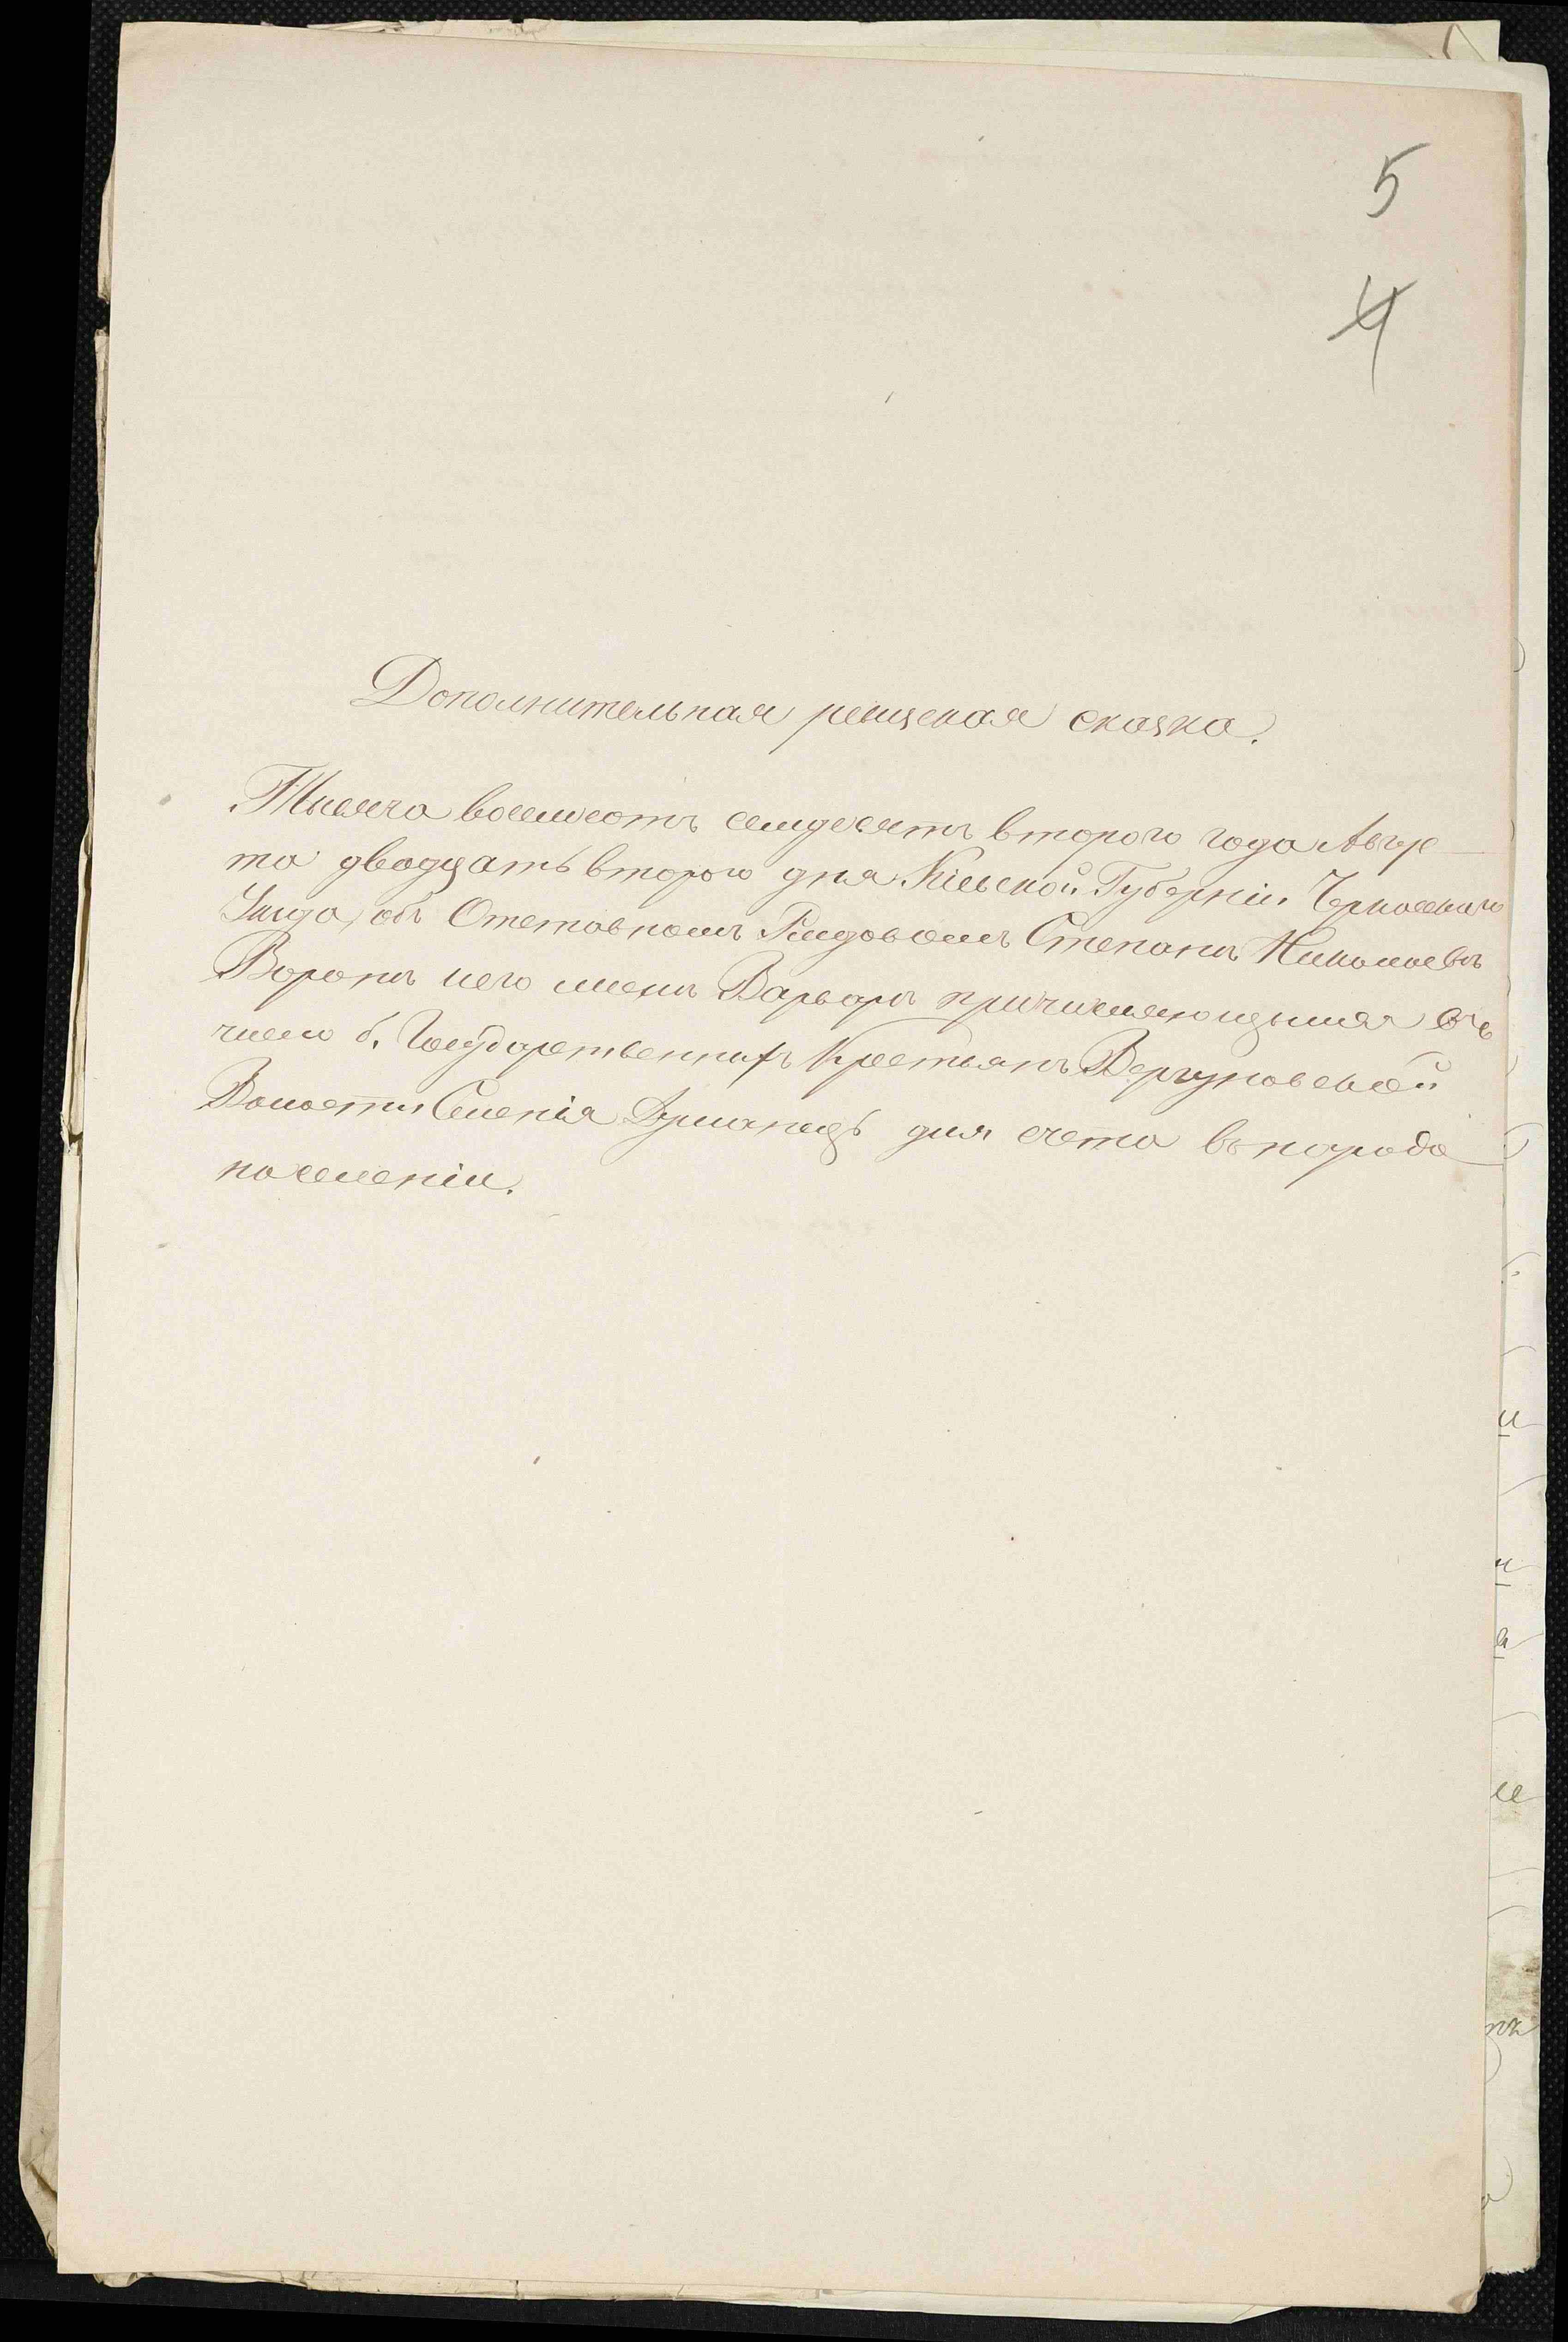 5
4
Дополнительная ревизская сказка.
Тысяча восемьсотъ семдесятъ второго года Авгус
та двадцать второго дня Кіевской Губерніи Черкаскаго
Уезда, объ Отставномъ Рядовомъ Степанъ Николаевъ
Воронъ и его женъ Варваръ причисляющымся въ
число б. Государственныхъ Крестьянъ Вергуновской
Волости Селенія Думанецъ для счета въ народо
населеніи.